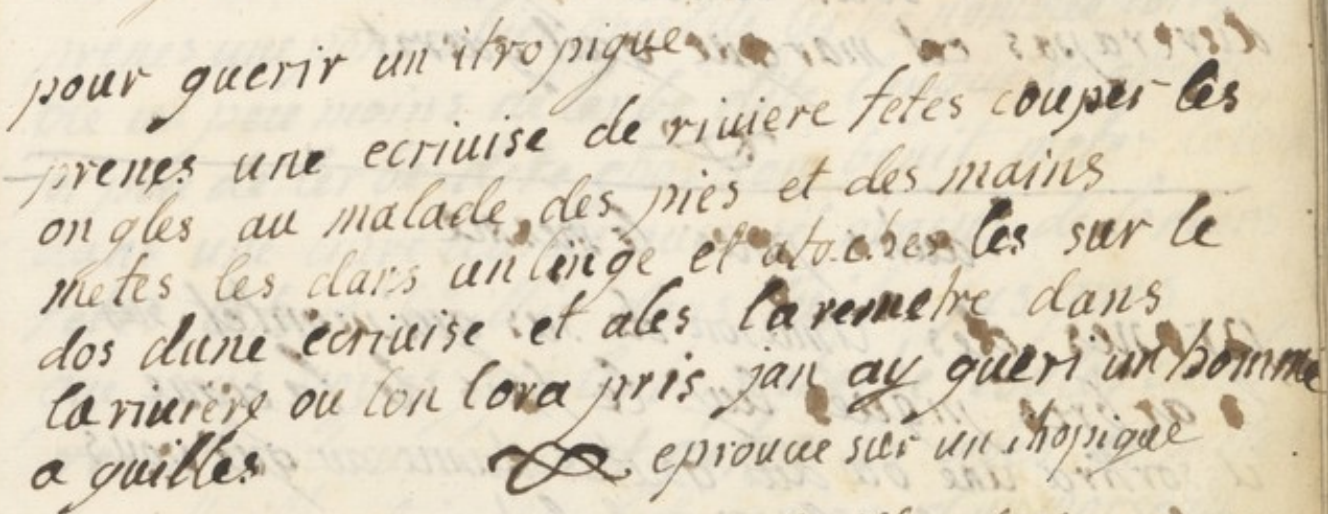 pour guerir un itropique
prenes une ecriuise de riuiere fetes couper les
ongles au malade des pies et des mains
metes les dans un linge et ataches les sur le
dos dune ecriuise et ales la remetre dans
la riuiere ou lon lora pris jan ay gueri un homme
a guilles eprouue sur un itropique